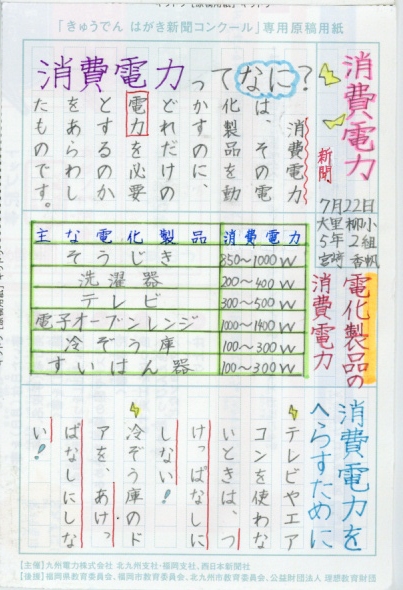 「きゅうでん はがき新聞コンクール」専用原稿用紙
消費電力
新聞
7月22日
大里柳小
5年2組
宮崎香帆
消費電力ってなに?
消費電力
は、その電
化製品を動
かすのに、
どれだけの
電力を必要
とするのか
をあらわし
たものです。
電化製品の
消費電力
主な電化製品 消費電力
そうじき 850~1000W
洗濯器 200~400W
テレビ 300~500W
電子オーブンレンジ 1000~1400W
冷ぞう庫 100~300W
すいはん器 100~300W
消費電力を
へらすために
テレビやエア
コンを使わな
いときは、つ
けっぱなしに
しない!
冷ぞう庫のド
アを、あけっ
ぱなしにしな
い!
【主催】九州電力株式会社 北九州支社・福岡支社、西日本新聞社
【後援】福岡県教育委員会、福岡市教育委員会、北九州市教育委員会、公益財団法人 理想教育財団